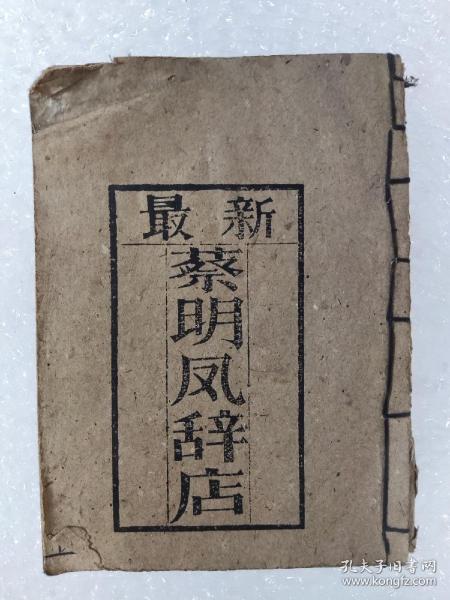 最新
蔡明凤辞店
上
孔夫子旧书网
www.kongfz.com